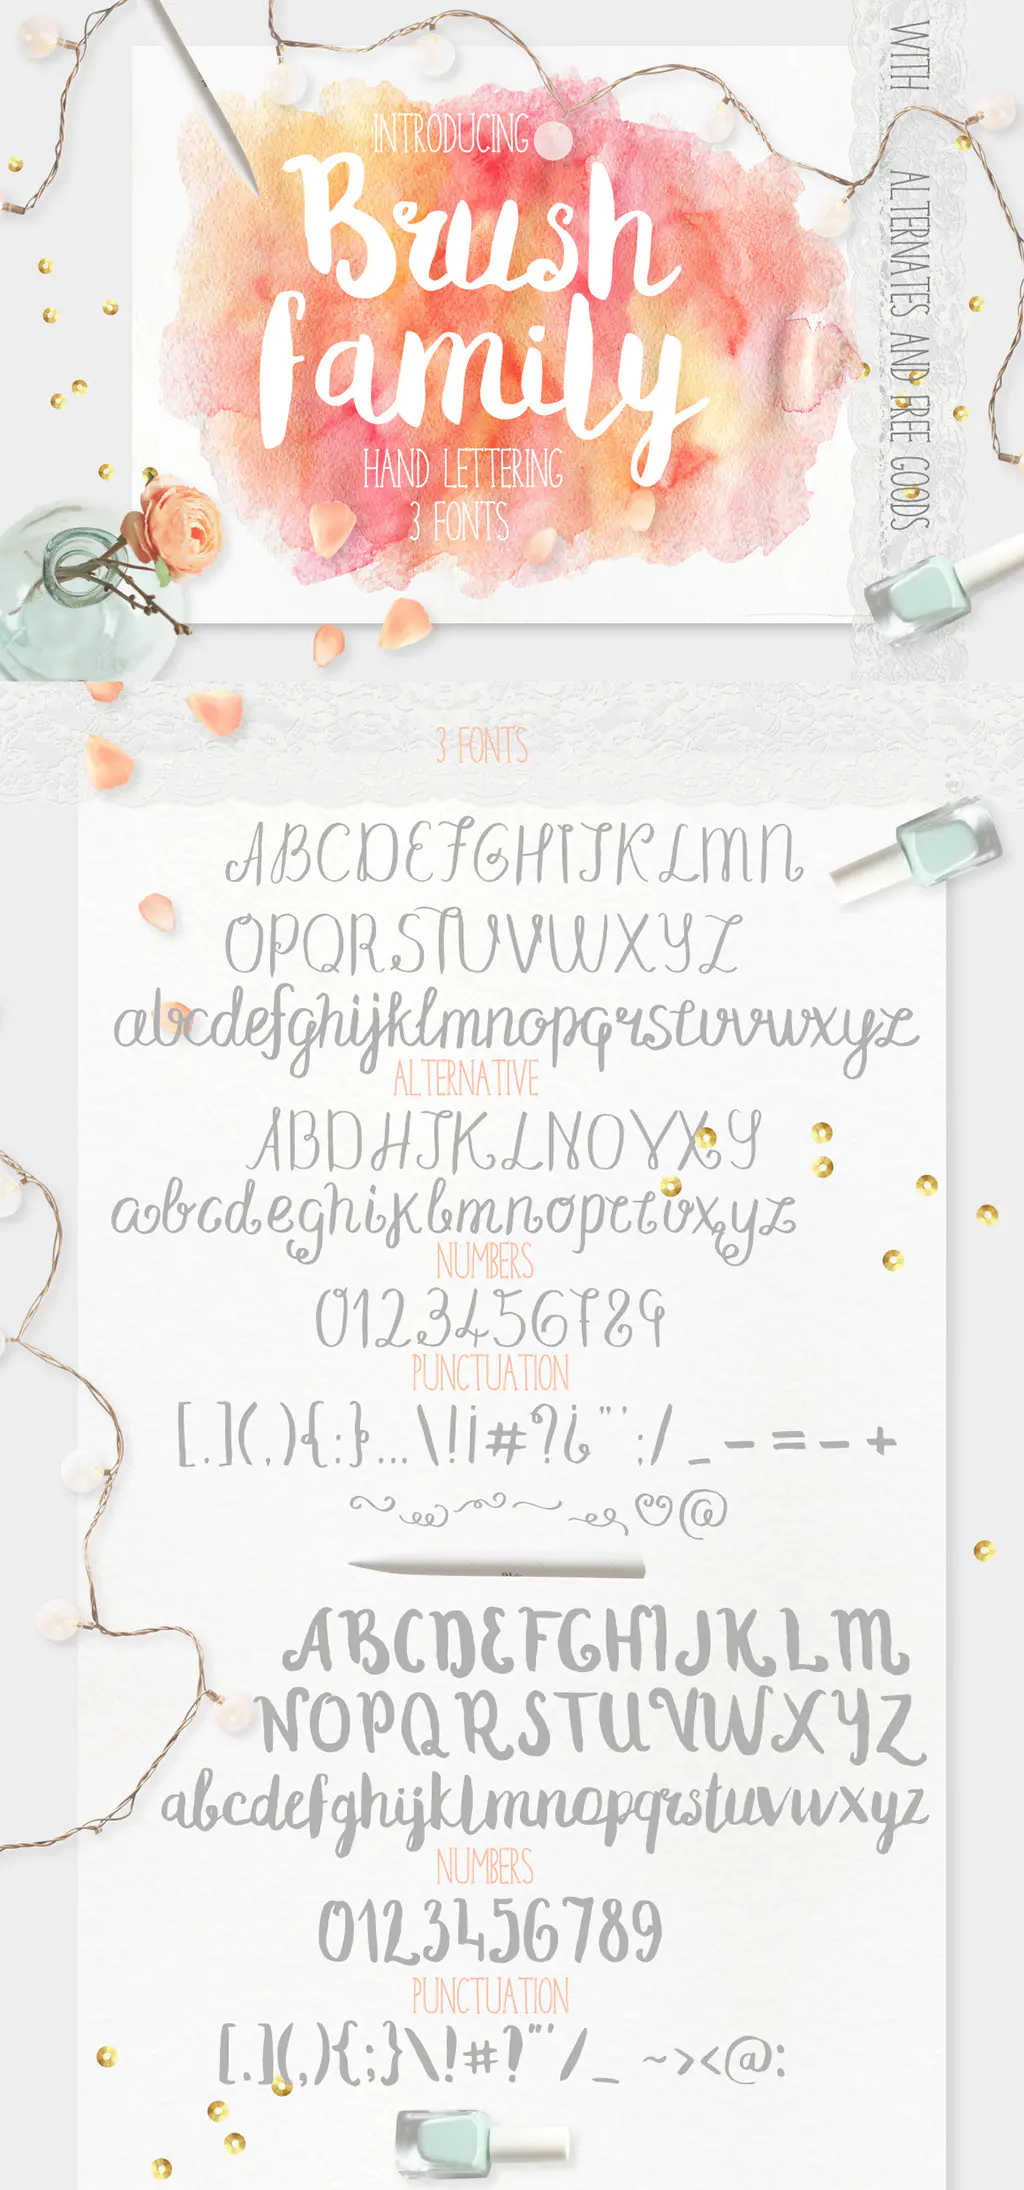 INTRODUCING
Brush
family
HAND LETTERING
3 FONTS
WITH ALTERNATES AND FREE GOODS
3 FONTS
ABCDEFGHIJKLMN
OPQRSTUVWXYZ
abcdefghijklmnopqrstuvwxyz
ALTERNATIVE
ABDHJKLNOVXY
abcdeghiklmnoprtvxyz
NUMBERS
0123456789
PUNCTUATION
[.](,){:}...\!¡#?¿"';/_-=-+
@
ABCDEFGHIJKLM
NOPQRSTUVWXYZ
abcdefghijklmnopqrstuvwxyz
NUMBERS
0123456789
PUNCTUATION
[.](,){;}\!#?"'/_ ~><@: